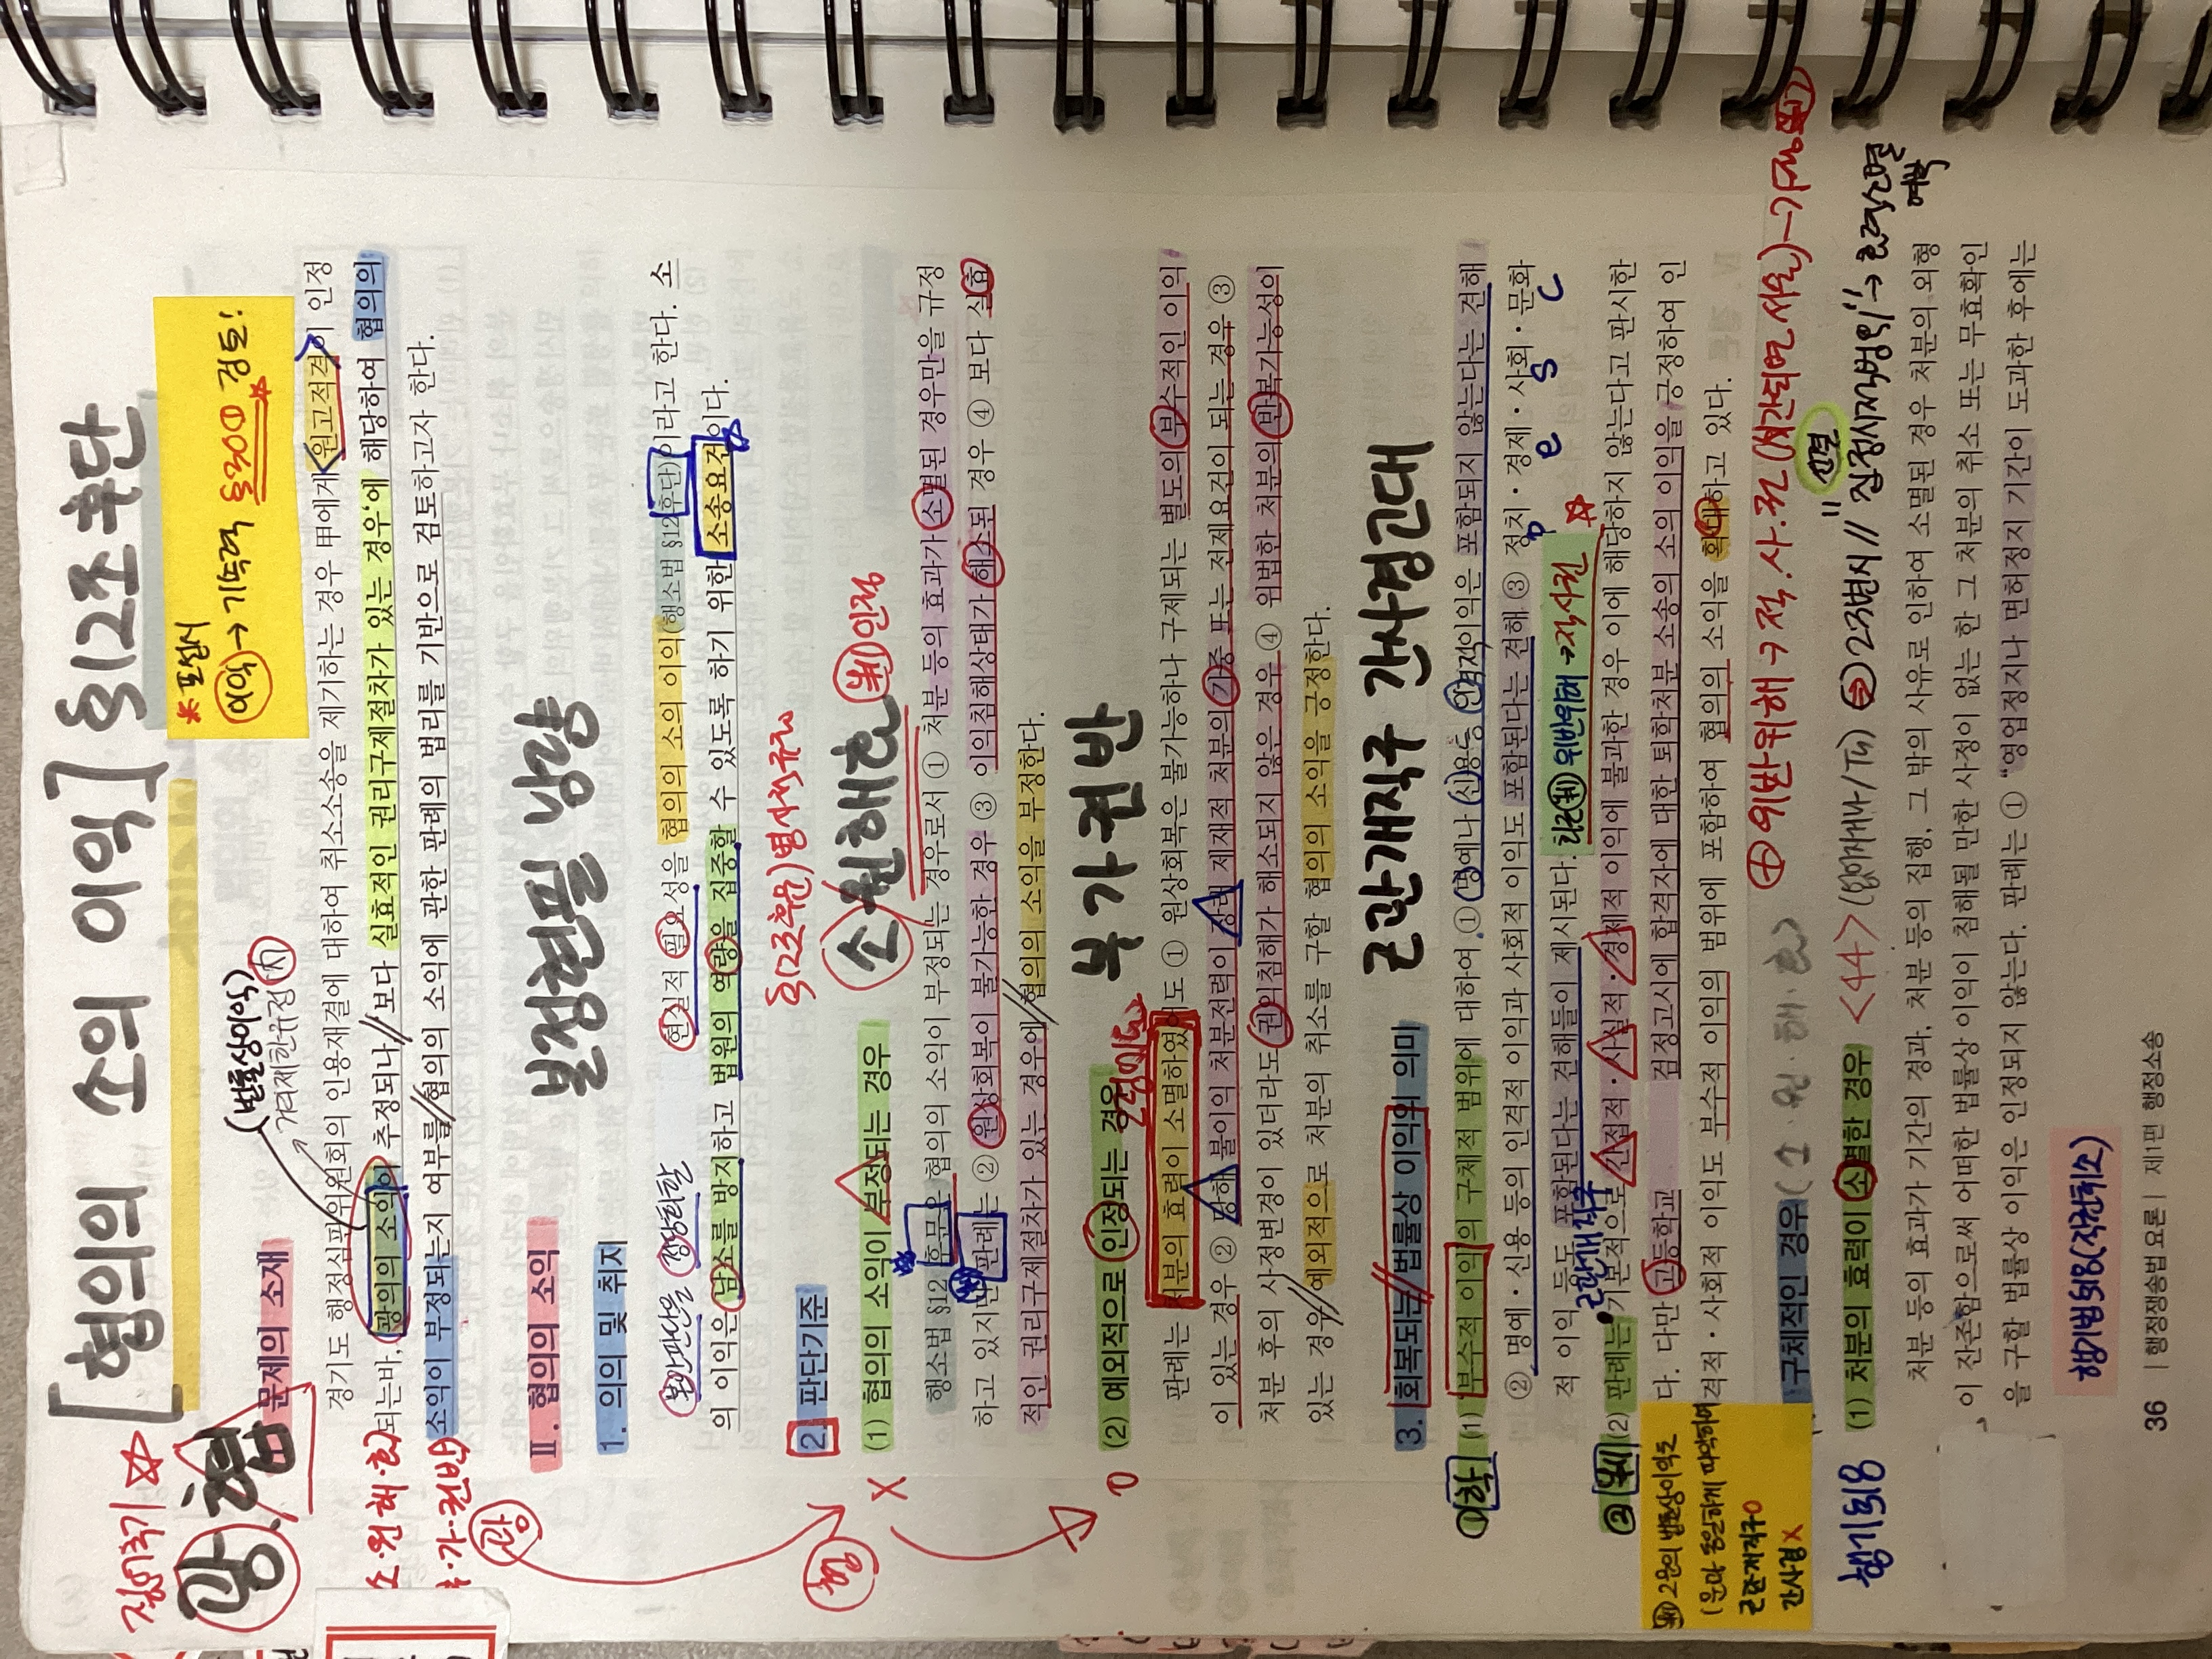 [협의의 소의 이익] §12조 후단
* 포섭시
여익→기속력 §30① 검토!
쟁이주기 ☆
광.협
(법률상이익)
문제의 소재
경기도 행정심판위원회의 인용재결에 대하여 취소소송을 제기하는 경우 甲에게 원고적격이 인정
되는바, 광의의 소의이 추정되나//보다 실효적인 권리구제절차가 있는 경우'에 해당하여 협의의
소익이 부정되는지 여부를//협의의 소익에 관한 판례의 법리를 기반으로 검토하고자 한다.
소·원해·효
부·가·권반
광
Ⅱ. 협의의 소익
본정현필 남량
1. 의의 및 취지
본안판단을 정당화할 현실적 필요성을 협의의 소의 이익(행소법 §12후단)이라고 한다. 소
의 이익은 남소를 방지하고 법원의 역량을 집중할 수 있도록 하기 위한 소송요건이다.
§12조후문) 명시적규정
2. 판단기준
협
(1) 협의의 소익이 부정되는 경우
소원해효 判인정
X
행소법 §12 후문은 협의의 소익이 부정되는 경우로서 ① 처분 등의 효과가 소멸된 경우만을 규정
하고 있지만 판례는 ② 원상회복이 불가능한 경우 ③ 이익침해상태가 해소된 경우 ④ 보다 실효
적인 권리구제절차가 있는 경우에//협의의 소익을 부정한다.
(2) 예외적으로 인정되는 경우
부가권반
O
판례는 처분의 효력이 소멸하였어도 ① 원상회복은 불가능하나 구제되는 별도의 부수적인 이익
이 있는 경우 ② 당해 불이익 처분전력이 장래 제재적 처분의 가중 또는 전제요건이 되는 경우 ③
처분 후의 사정변경이 있더라도 권익침해가 해소되지 않은 경우 ④ 위법한 처분의 반복가능성의
있는 경우//예외적으로 처분의 취소를 구할 협의의 소익을 긍정한다.
3. 회복되는//법률상 이익의 의미
근관개직구 간사경고대
①학
(1) 부수적 이익의 구체적 범위에 대하여 ① 명예나 신용등 인격적이익은 포함되지 않는다는 견해
② 명예·신용 등의 인격적 이익과 사회적 이익도 포함된다는 견해 ③ 정치·경제·사회·문화
p e s c
적 이익 등도 포함된다는 견해들이 제시된다.
최근判 위반위해→직사권 ☆
근관개직구
②判
(2) 판례는 기본적으로 간접적·사실적·경제적 이익에 불과한 경우 이에 해당하지 않는다고 판시한
다. 다만 고등학교 검정고시에 합격자에 대한 퇴학처분 소송의 소의 이익을 긍정하여 인
격적·사회적 이익도 부수적 이익의 범위에 포함하여 협의의 소익을 확대하고 있다.
判 2문의 법률상이익도
1문과 동일하게 파악하여
근관개직구O
간사경X
구체적인 경우(소·원·해·효)
<44>
(1) 처분의 효력이 소멸한 경우
행기되8
처분 등의 효과가 기간의 경과, 처분 등의 집행, 그 밖의 사유로 인하여 소멸된 경우 처분의 외형
이 잔존함으로써 어떠한 법률상 이익이 침해될 만한 사정이 없는 한 그 처분의 취소 또는 무효확인
을 구할 법률상 이익은 인정되지 않는다. 판례는 ① "영업정지나 면허정지 기간이 도과한 후에는
36 | 행정쟁송법 요론 | 제1편 행정소송